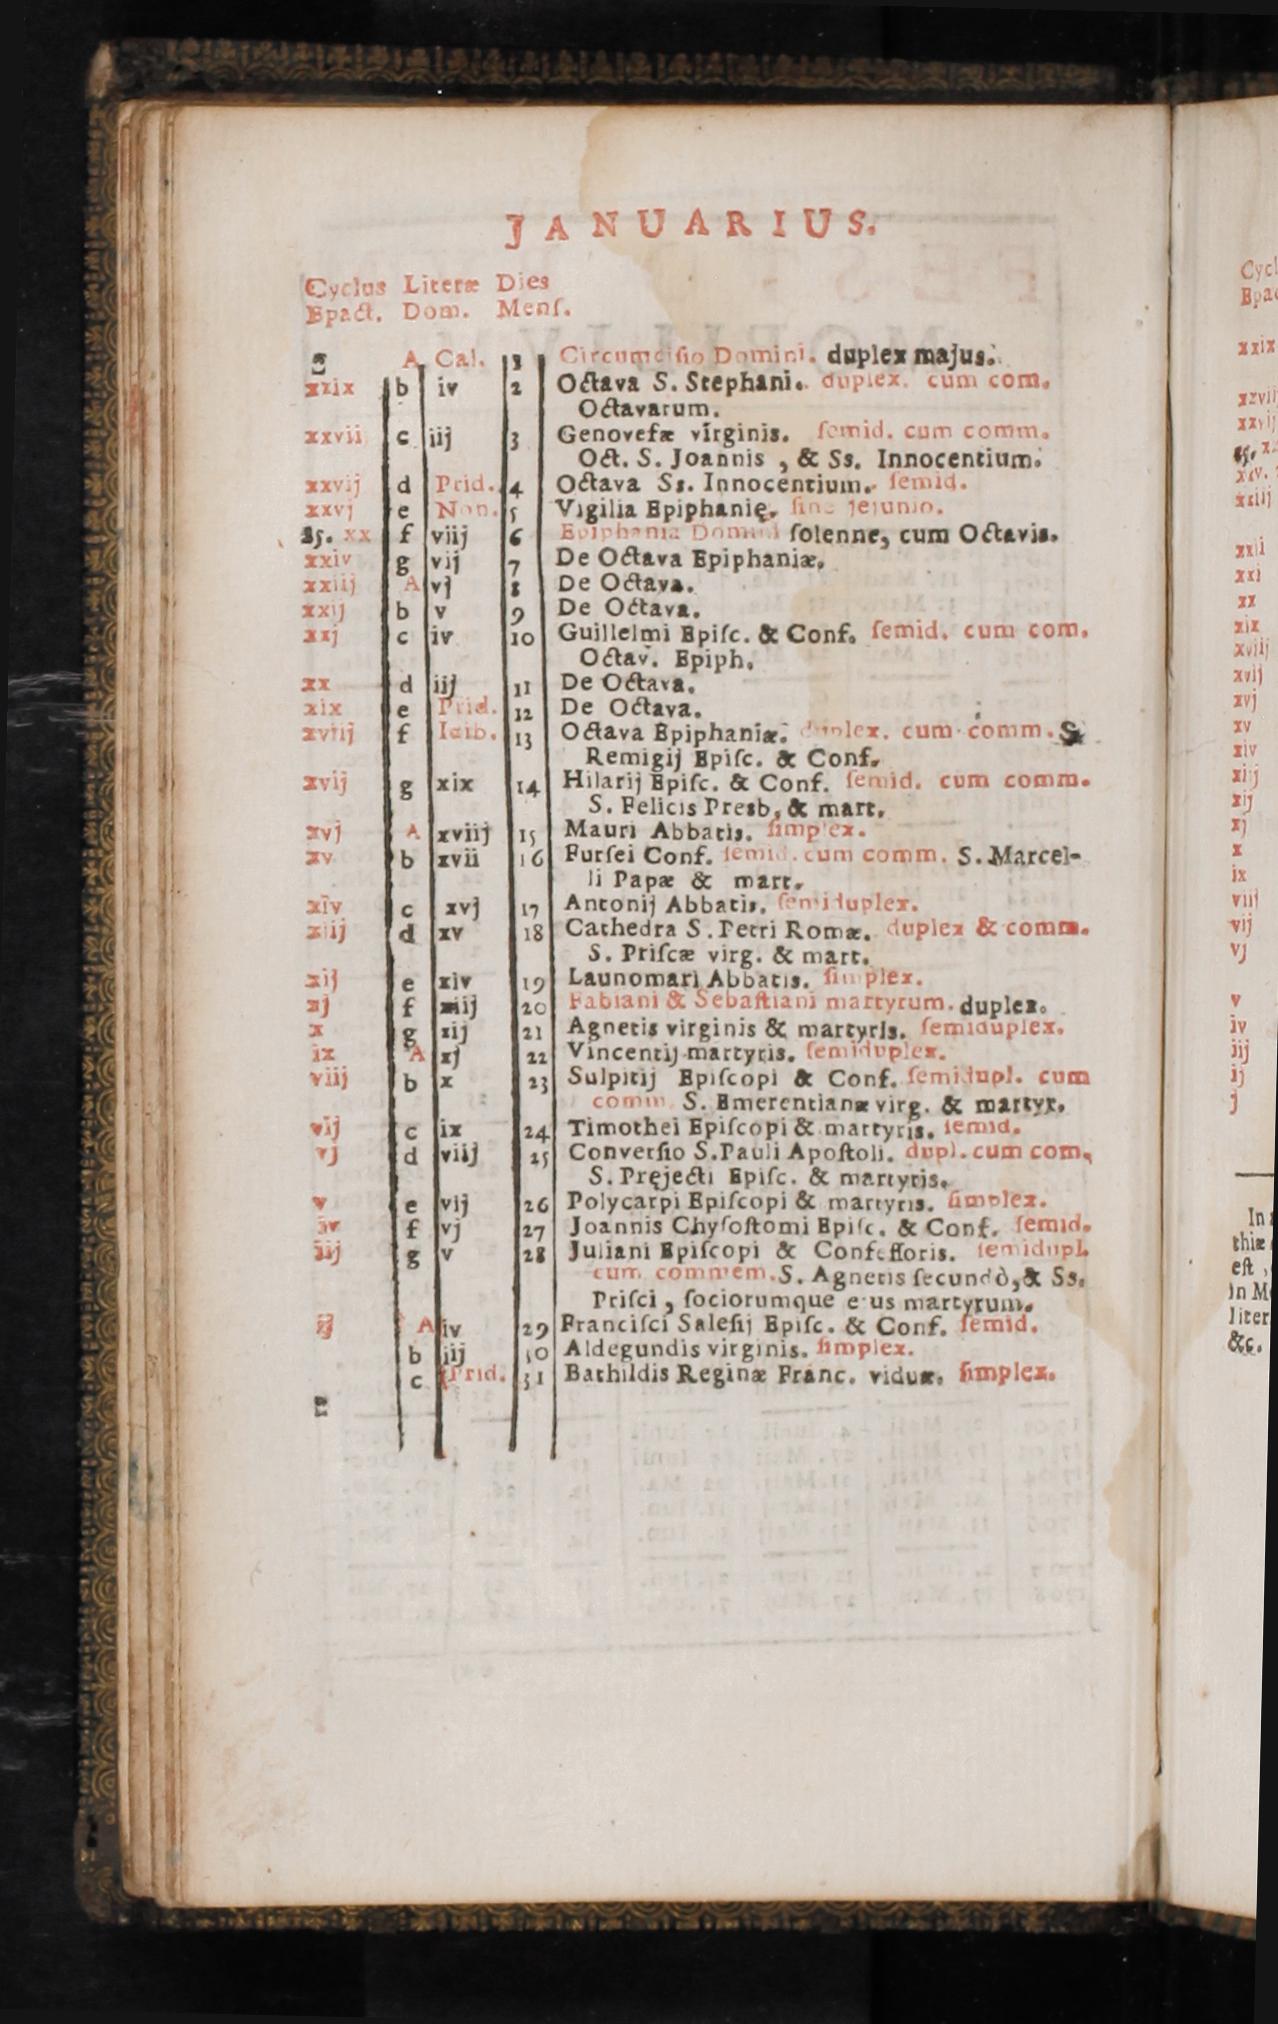 JANUARIUS.
Cyclus Literæ Dies
Epact. Dom. Menſ.
A Cal. 1 Circumciſio Domini. duplex majus.
xxix b iv 2 Octava S. Stephani. duplex. cum com.
Octavarum.
xxvii c iij 3 Genovefæ virginis. ſemid. cum comm.
Oct. S. Joannis , & Ss. Innocentium.
xxvij d Prid. 4 Octava Ss. Innocentium. ſemid.
xxvj e Non. 5 Vigilia Epiphanię. ſine jejunio.
25. xx f viij 6 Epiphania Domini ſolenne, cum Octavis.
xxiv g vij 7 De Octava Epiphaniæ.
xxiij A vj 8 De Octava.
xxij b v 9 De Octava.
xxj c iv 10 Guillelmi Epiſc. & Conf. ſemid. cum com.
Octav. Epiph.
xx d iij 11 De Octava.
xix e Prid. 12 De Octava.
xviij f Idib. 13 Octava Epiphaniæ. duplex. cum comm. S.
Remigij Epiſc. & Conf.
xvij g xix 14 Hilarij Epiſc. & Conf. ſemid. cum comm.
S. Felicis Presb, & mart.
xvj A xviij 15 Mauri Abbatis. ſimplex.
xv b xvii 16 Furſei Conf. ſemid. cum comm. S. Marcel-
li Papæ & mart.
xiv c xvj 17 Antonij Abbatis. ſemiduplex.
xiij d xv 18 Cathedra S. Petri Romæ. duplex & comm.
S. Priſcæ virg. & mart.
xij e xiv 19 Launomari Abbatis. ſimplex.
xj f xiij 20 Fabiani & Sebaſtiani martyrum. duplex.
x g xij 21 Agnetis virginis & martyris. ſemiduplex.
ix A xj 22 Vincentij martyris. ſemiduplex.
viij b x 23 Sulpitij Epiſcopi & Conf. ſemidupl. cum
comm. S. Emerentianæ virg. & martyr.
vij c ix 24 Timothei Epiſcopi & martyris. ſemid.
vj d viij 25 Converſio S. Pauli Apoſtoli. dupl. cum com.
S. Pręjecti Epiſc. & martyris.
v e vij 26 Polycarpi Epiſcopi & martyris. ſimplex.
iv f vj 27 Joannis Chyſoſtomi Epiſc. & Conf. ſemid.
iij g v 28 Juliani Epiſcopi & Confeſſoris. ſemidupl.
cum commem. S. Agnetis ſecundò, & Ss.
Priſci , ſociorumque ejus martyrum.
ij A iv 29 Franciſci Saleſij Epiſc. & Conf. ſemid.
b iij 30 Aldegundis virginis. ſimplex.
c Prid. 31 Bathildis Reginæ Franc. viduæ. ſimplex.
Cycl
Epac
xxix
xxvij
xxiij
xxii
xxi
xx
xix
xviij
xvij
xvj
xv
xiv
xiij
xij
xj
x
ix
viij
vij
vj
v
iv
iij
ij
j
In
thiæ
eſt ,
in M
liter
&c.